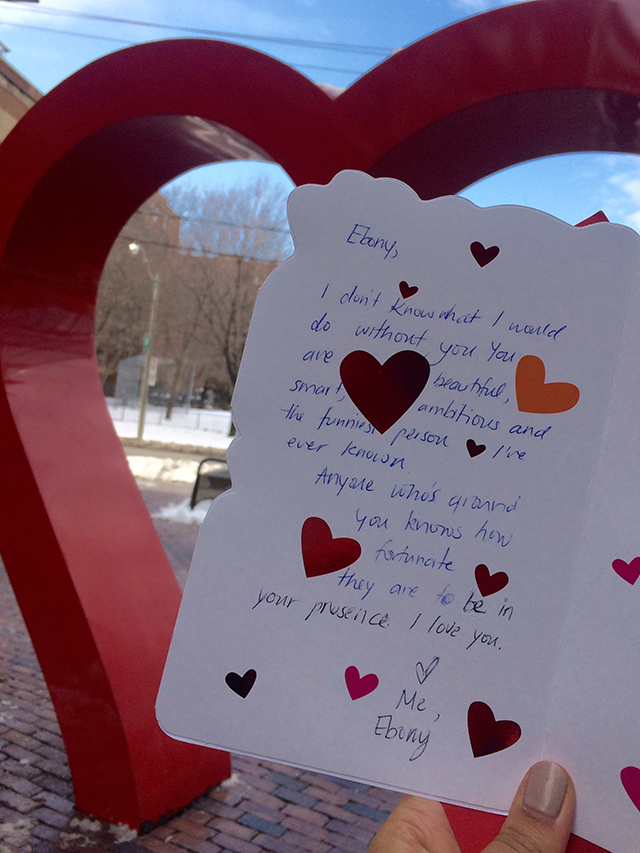 Ebony,
I don't know what I would
do without you You
are beautiful,
smart, ambitious and
the funniest person I've
ever known.
Anyone who's around
you knows how
fortunate
they are to be in
your presence. I love you.
Me,
Ebony